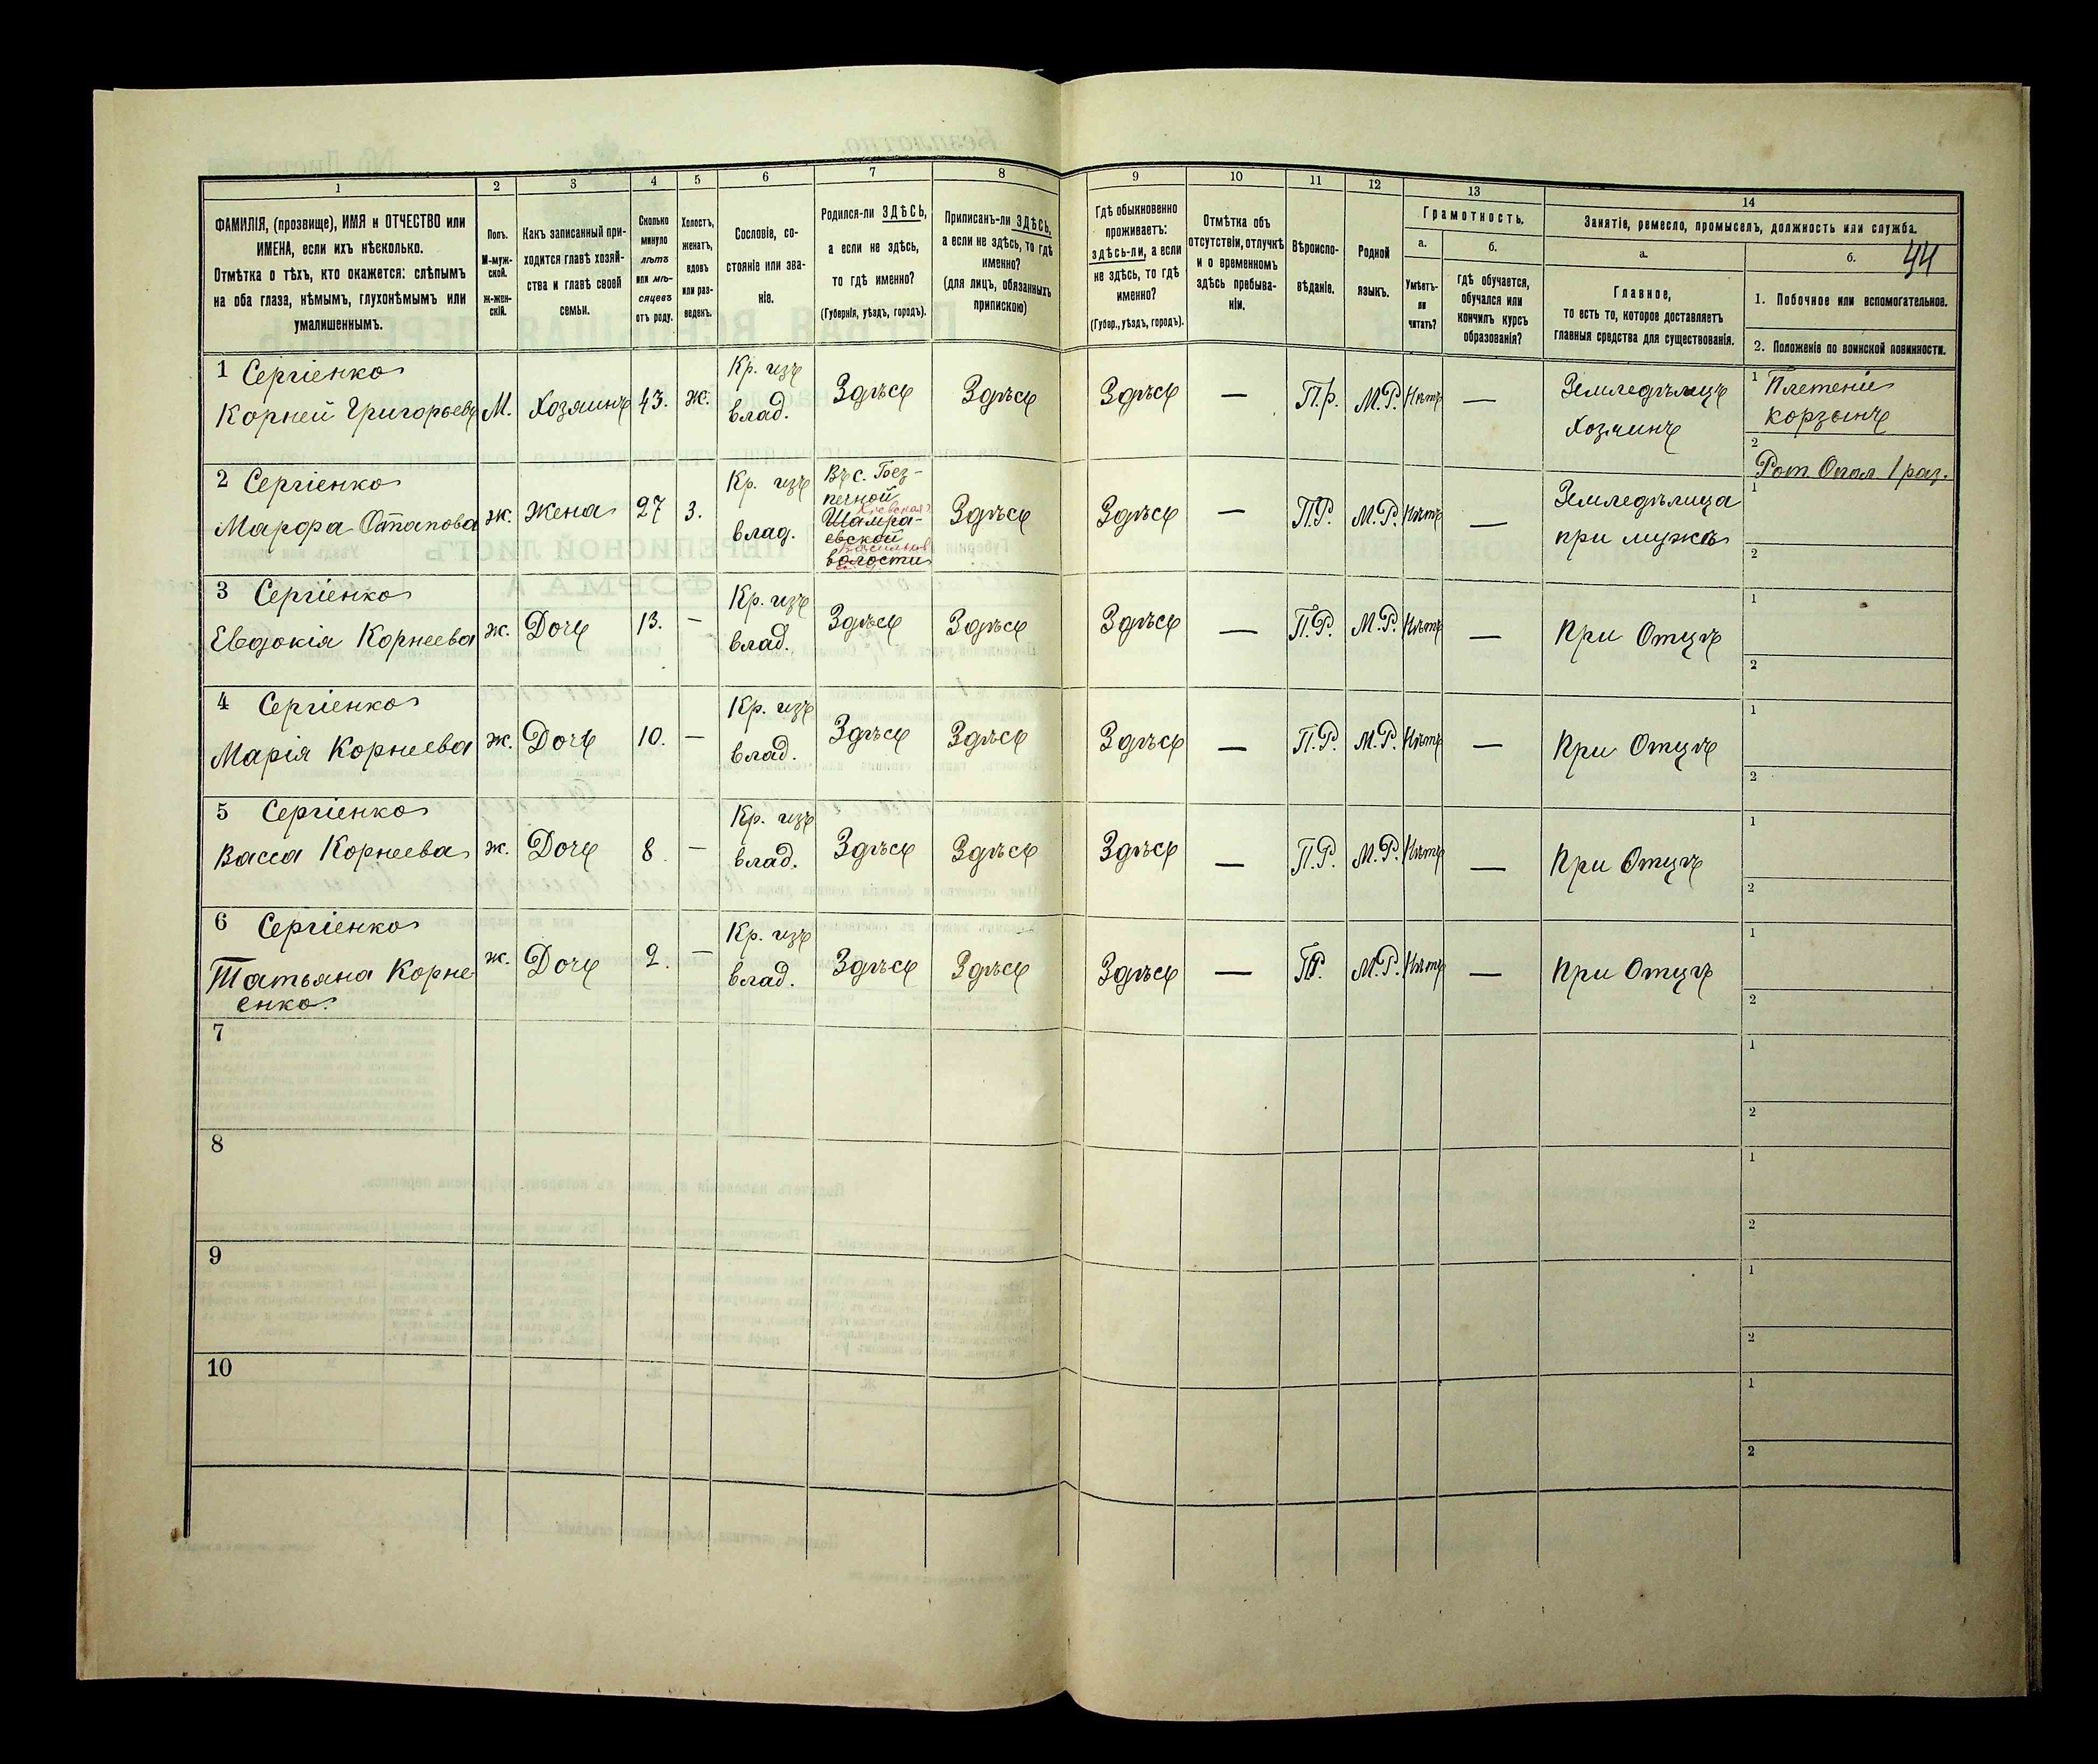 44
1
2
3
4
5
6
7
8
9
10
11
12
13
14
ФАМИЛІЯ, (прозвище), ИМЯ и ОТЧЕСТВО или
ИМЕНА, если ихъ нѣсколько.
Отмѣтка о тѣхъ, кто окажется: слѣпымъ
на оба глаза, нѣмымъ, глухонѣмымъ или
умалишеннымъ.
Полъ.
М-муж-
ской.
ж-жен-
скій.
Какъ записанный при-
ходится главѣ хозяй-
ства и главѣ своей
семьи.
Сколько
минуло
лѣтъ
или мѣ-
сяцевъ
отъ роду.
Холостъ,
женатъ,
вдовъ
или раз-
веденъ.
Сословіе, со-
стояніе или зва-
ніе.
Родился-ли ЗДѢСЬ,
а если не здѣсь,
то гдѣ именно?
(Губернія, уѣздъ, городъ).
Приписанъ-ли ЗДѢСЬ,
а если не здѣсь, то гдѣ
именно?
(для лицъ, обязанныхъ
припискою)
Гдѣ обыкновенно
проживаетъ:
здѣсь-ли, а если
не здѣсь, то гдѣ
именно?
(Губер., уѣздъ, городъ).
Отмѣтка объ
отсутствіи, отлучкѣ
и о временномъ
здѣсь пребыва-
ніи.
Вѣроиспо-
вѣданіе.
Родной
языкъ.
Грамотность.
а.
Умѣетъ-
ли
читать?
б.
гдѣ обучается,
обучался или
кончилъ курсъ
образованія?
Занятіе, ремесло, промыселъ, должность или служба.
а.
Главное,
то есть то, которое доставляетъ
главныя средства для существованія.
б.
1. Побочное или вспомогательное.
2. Положеніе по воинской повинности.
1 Сергіенко
Корней Григорьевъ
М.
Хозяинъ
43.
ж.
Кр. изъ
влад.
Здѣсь
Здѣсь
Здѣсь
—
П.р.
М.Р.
Нѣтъ
—
Земледѣлецъ
Хозяинъ
1 Плетеніе
корзинъ
2
2 Сергіенко
Марфа Остапова
ж.
Жена
27
З.
Кр. изъ
влад.
Въ с. Без-
печной
Кіевская
Шамра-
евской
Васильков
волости
Здѣсь
Здѣсь
—
П.Р.
М.Р.
Нѣтъ
—
Земледѣлица
при мужѣ
1
2
3 Сергіенко
Евдокія Корнеева
ж.
Дочь
13.
—
Кр. изъ
влад.
Здѣсь
Здѣсь
Здѣсь
—
П.Р.
М.Р.
Нѣтъ
—
При Отцѣ
1
2
4 Сергіенко
Марія Корнеева
ж.
Дочь
10.
—
Кр. изъ
влад.
Здѣсь
Здѣсь
Здѣсь
—
П.Р.
М.Р.
Нѣтъ
—
При Отцѣ
1
2
5 Сергіенко
Васса Корнеева
ж.
Дочь
8.
—
Кр. изъ
влад.
Здѣсь
Здѣсь
Здѣсь
—
П.Р.
М.Р.
Нѣтъ
—
При Отцѣ
1
2
6 Сергіенко
Татьяна Корне
енко.
ж.
Дочь
2.
—
Кр. изъ
влад.
Здѣсь
Здѣсь
Здѣсь
—
П.Р.
М.Р.
Нѣтъ
—
При Отцѣ
1
2
7
1
2
8
1
2
9
1
2
10
1
2